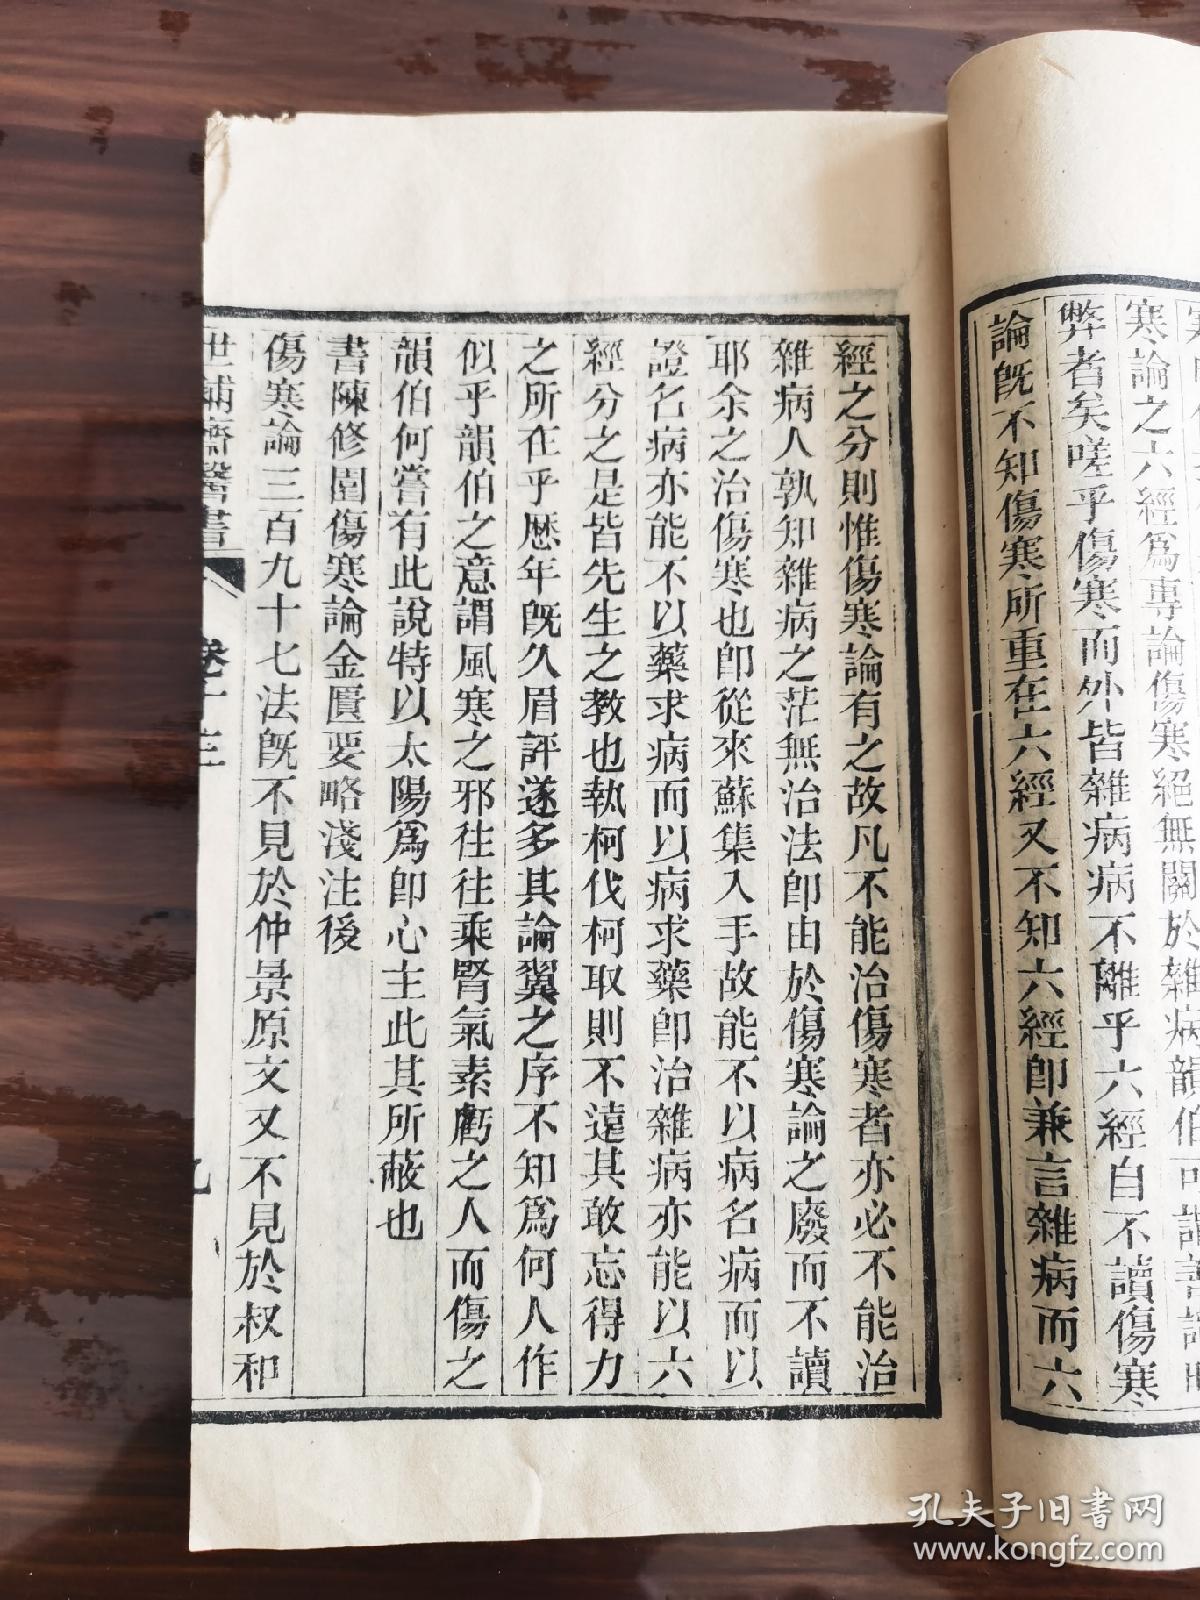 寒論之六經爲專論傷寒絕無關於雜病韻伯可謂
弊者矣嗟乎傷寒而外皆雜病病不離乎六經自不讀傷寒
論既不知傷寒所重在六經又不知六經卽兼言雜病而六
經之分則惟傷寒論有之故凡不能治傷寒者亦必不能治
雜病人孰知雜病之茫無治法卽由於傷寒論之廢而不讀
耶余之治傷寒也卽從來蘇集入手故能不以病名病而以
證名病亦能不以藥求病而以病求藥卽治雜病亦能以六
經分之是皆先生之教也執柯伐柯取則不遠其敢忘得力
之所在乎歷年既久眉評遂多其論翼之序不知爲何人作
似乎韻伯之意謂風寒之邪往往乘腎氣素虧之人而傷之
韻伯何嘗有此說特以太陽爲卽心主此其所蔽也
書陳修園傷寒論金匱要略淺注後
傷寒論三百九十七法既不見於仲景原文又不見於叔和
世補齋醫書
卷十三
九
孔夫子旧書网
www.kongfz.com